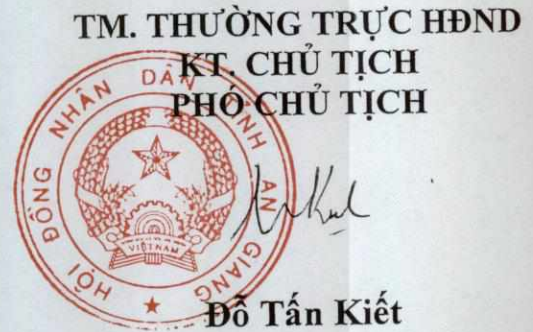 TM. THƯỜNG TRỰC HĐND
KT. CHỦ TỊCH
PHÓ CHỦ TỊCH
HỘI ĐỒNG NHÂN DÂN TỈNH AN GIANG
VIỆT NAM
Đỗ Tấn Kiết